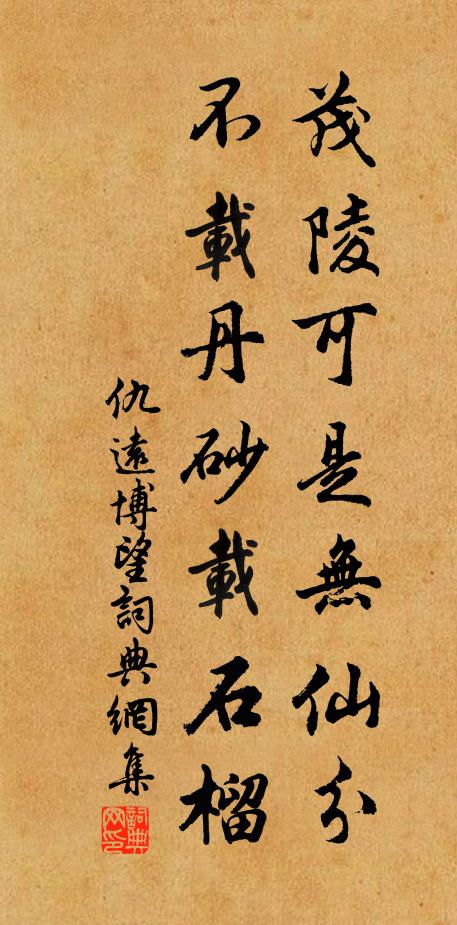 茂陵可是無仙分
不載丹砂載石榴
仇遠博望詞典網集
詞典网印